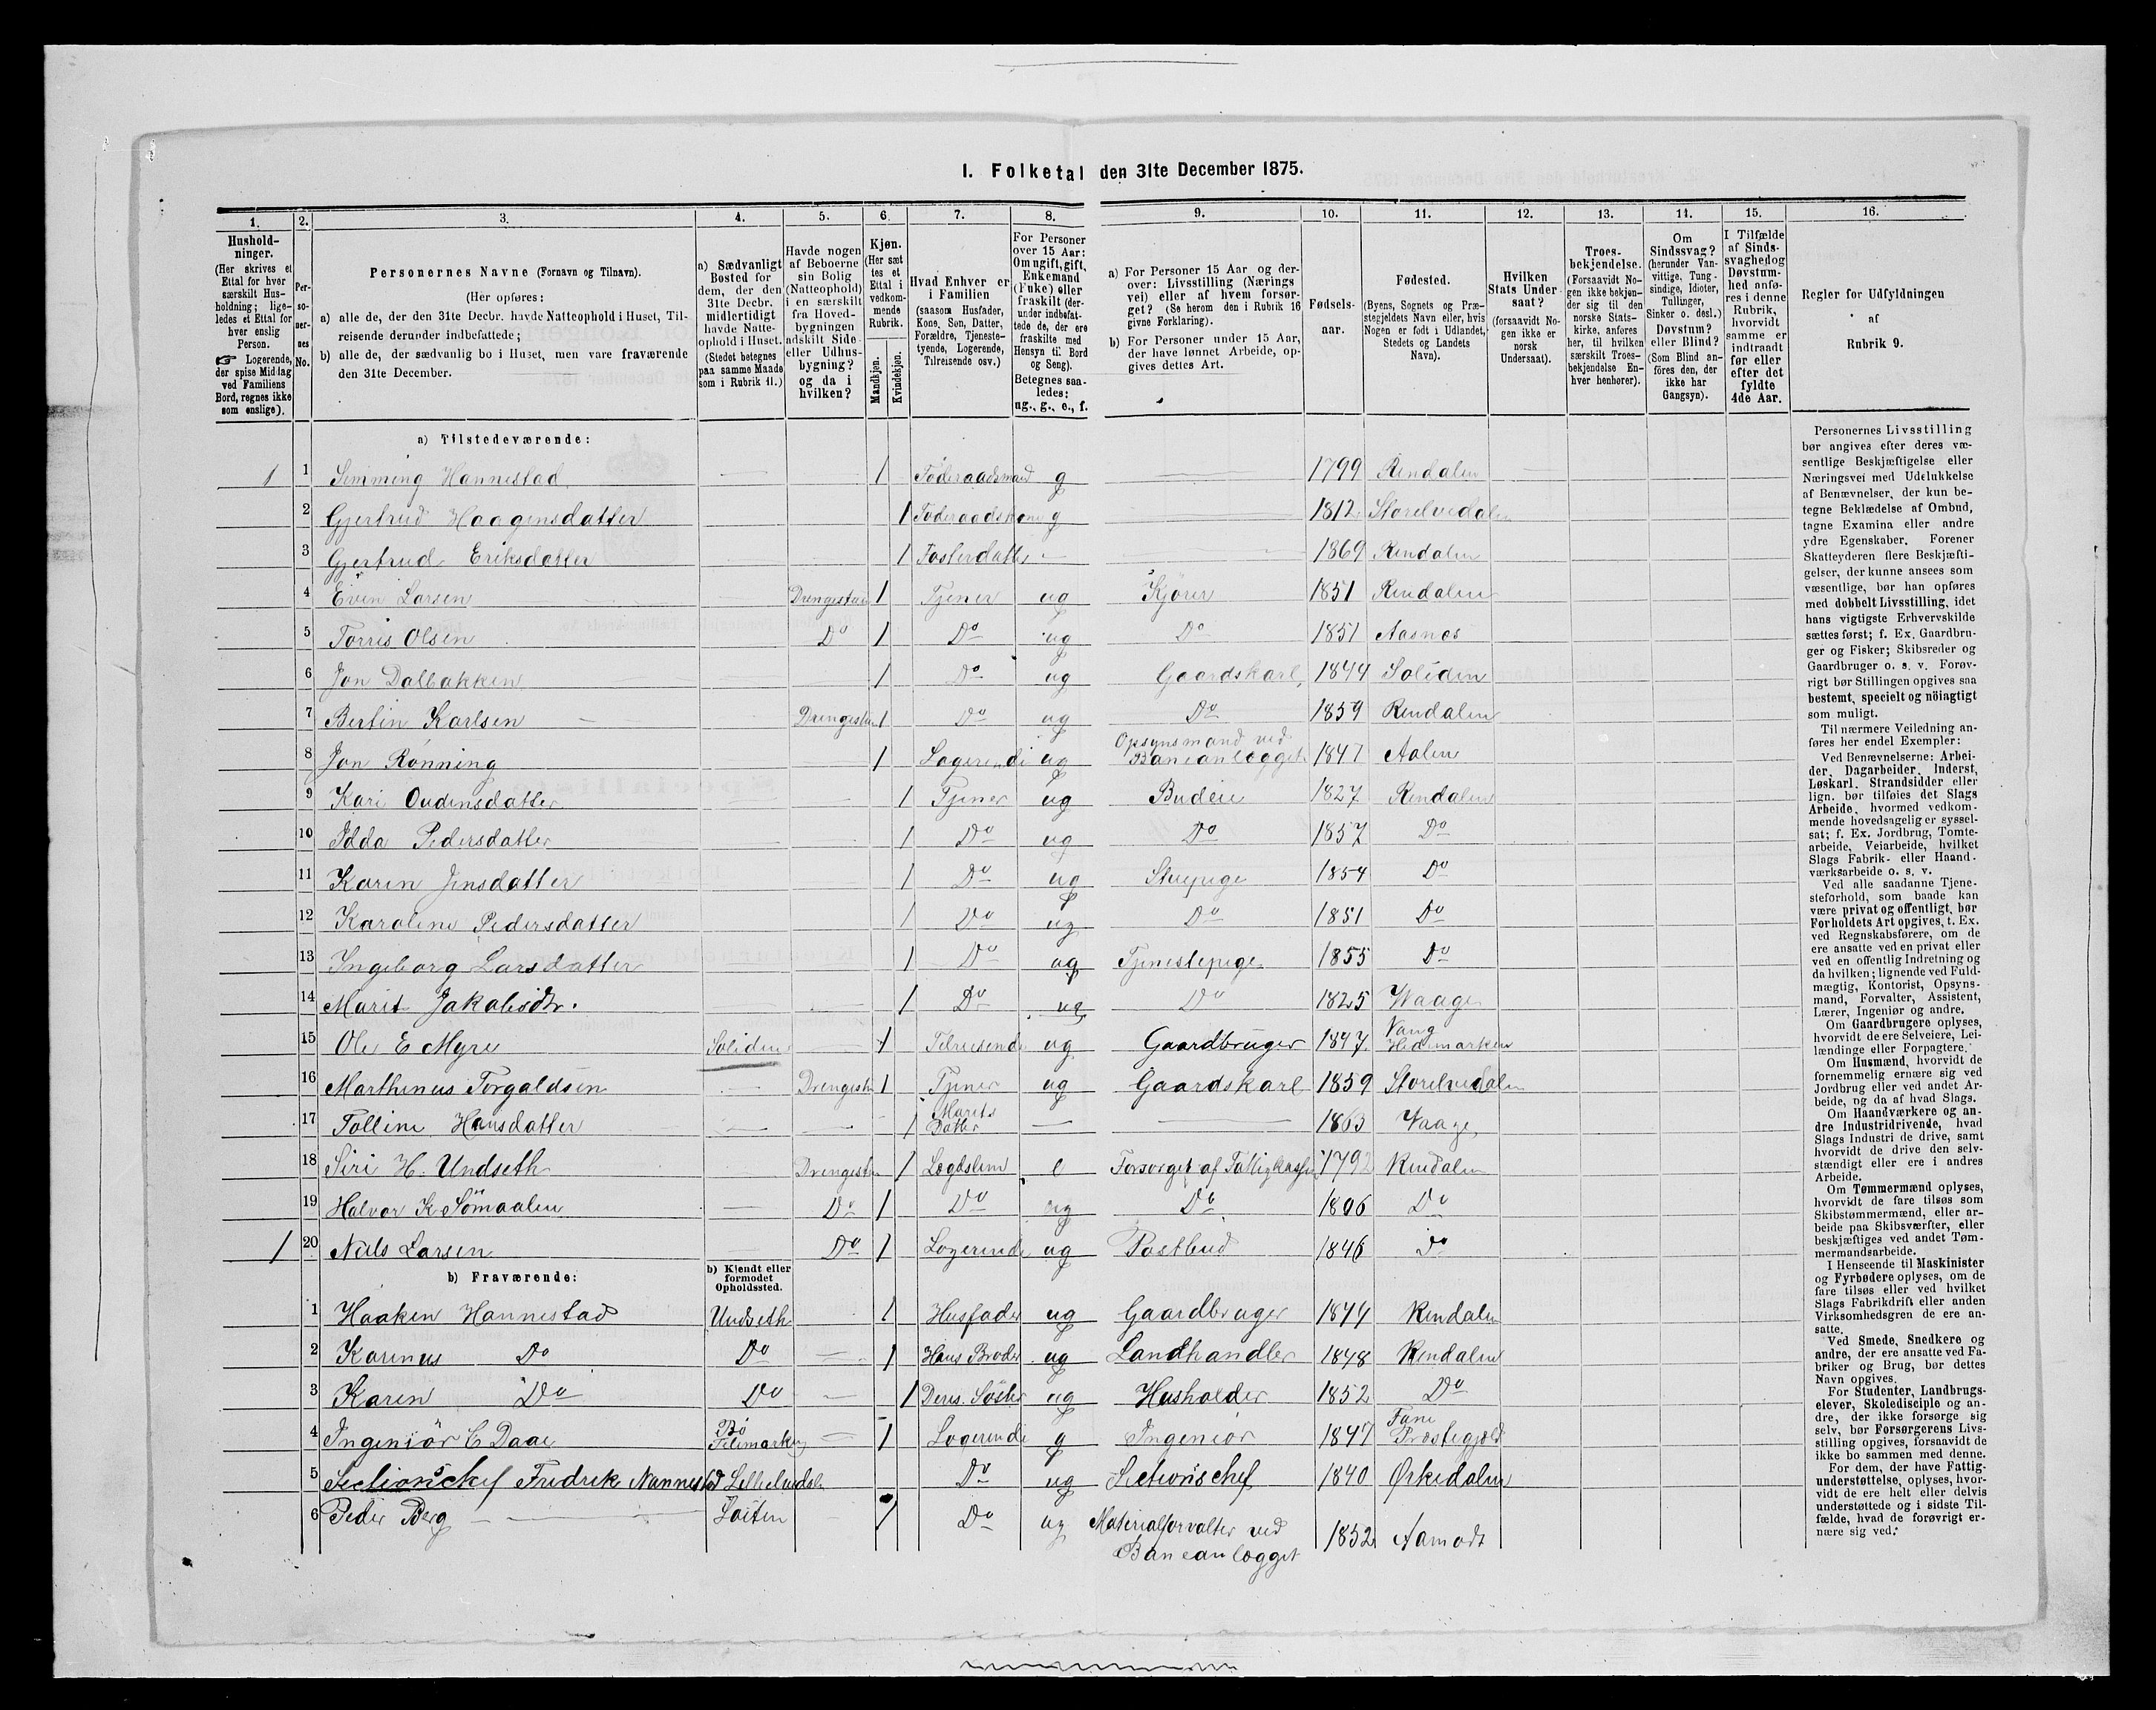 1. Folketal den 31te December 1875.
1.
Hushold-
ninger.
(Her skrives et
Ettal for hver
særskilt Hus-
holdning; lige-
ledes et Ettal for
hver enslig
Person.
☞ Logerende,
der spise Middag
ved Familiens
Bord, regnes ikke
som enslige).
2.
Per-
so-
ner-
nes
No.
3.
Personernes Navne (Fornavn og Tilnavn).
(Her opføres:
a) alle de, der den 31te Decbr. havde Natteophold i Huset, Til-
reisende derunder indbefattede;
b) alle de, der sædvanlig bo i Huset, men vare fraværende
den 31te December.
4.
a) Sædvanligt
Bosted for
dem, der den
31te Decbr.
midlertidigt
havde Natte-
ophold i Huset.
(Stedet betegnes
paa samme Maade
som i Rubrik 11.)
5.
Havde nogen
af Beboerne
sin Bolig
(Natteophold)
i en særskilt
fra Hoved-
bygningen
adskilt Side-
eller Udhus-
bygning?
og da i
hvilken?
6.
Kjøn.
(Her sæt-
tes et
Ettal i
vedkom-
mende
Rubrik.
Mandkjøn.
Kvindekjøn.
7.
Hvad Enhver er
i Familien
(saasom Husfader,
Kone, Søn, Datter,
Forældre, Tjeneste-
tyende, Logerende,
Tilreisende osv.)
8.
For Personer
over 15 Aar:
Om ugift, gift,
Enkemand
(Enke) eller
fraskilt (der-
under indbefat-
tede de, der ere
fraskilte med
Hensyn til Bord
og Seng).
Betegnes saa-
ledes:
ug., g., e., f.
9.
a) For Personer 15 Aar og der-
over: Livsstilling (Nærings-
vei) eller af hvem forsør-
get? (Se herom den i Rubrik 16
givne Forklaring).
b) For Personer under 15 Aar,
der have lønnet Arbeide, op-
gives dettes Art.
10.
Fødsels-
aar.
11.
Fødested.
(Byens, Sognets og Præ-
stegjeldets Navn eller, hvis
Nogen er født i Udlandet,
Stedets og Landets
Navn).
12.
Hvilken
Stats Under-
saat?
(forsaavidt No-
gen ikke er
norsk
Undersaat).
13.
Troes-
bekjendelse.
(Forsaavidt No-
gen ikke bekjen-
der sig til den
norske Stats-
kirke, anføres
her, til hvilken
særskilt Troes-
bekjendelse En-
hver henhører).
14.
Om
Sindssvag?
(herunder Van-
vittige, Tung-
sindige, Idioter,
Tullinger,
Sinker o. desl.)
Døvstum?
eller Blind?
(Som Blind an-
føres den, der
ikke har
Gangsyn).
15.
I Tilfælde
af Sinds-
svaghed og
Døvstum-
hed anfø-
res i denne
Rubrik,
hvorvidt
samme er
indtraadt
før eller
efter det
fyldte
4de Aar.
16.
Regler for Udfyldningen
af
Rubrik 9.
a) Tilstedeværende:
1 1 Simming Hannestad 1 Føderaadsmand g 1799 Rendalen
2 Gjertrud Haagensdatter 1 Føderaadskone g 1812 Storelvedalen
3 Gjertrud Eriksdatter 1 Fosterdatter 1869 Rendalen
4 Even Larsen Drengestuen 1 Tjener ug Kjører 1851 Rendalen
5 Torris Olsen Do 1 Do ug Do 1851 Aasnes
6 Jon Dalbakken 1 Do ug Gaardskarl 1844 Soliden
7 Bertin Karlsen Drengestuen 1 Do ug Do 1859 Rendalen
8 Jon Rønning 1 Logerende ug Opsynsmand ved
Baneanlægget 1847 Aalen
9 Kari Oudensdatter 1 Tjener ug Budeie 1827 Rendalen
10 Idda Pedersdatter 1 Do ug Do 1857 Do
11 Karen Jensdatter 1 Do ug Stuepige 1854 Do
12 Karoline Pedersdatter 1 Do ug Do 1851 Do
13 Ingeborg Larsdatter 1 Do ug Tjenestepige 1855 Do
14 Marit Jakobsdtr. 1 Do ug Do 1825 Waage
15 Ole E Myre Soliden 1 Tilreisende ug Gaardbruger 1847 Vang
Hedemarken
16 Marthinus Torgaldsen Drengestu 1 Tjener ug Gaardskarl 1859 Storelvedalen
17 Tolline Hansdatter 1 Marits
Datter 1863 Vaage
18 Siri H. Undseth Drengestu 1 Lægdslem e Forsørget af Fattigkassen 1792 Rendalen
19 Halvor K Sömaalen Do 1 Do ug Do 1806 Do
1 20 Nils Larsen Do 1 Logerende ug Postbud 1846 Do
b) Fraværende:
b) Kjendt eller
formodet
Opholdssted.
1 Haaken Hannestad Undseth 1 Husfader ug Gaardbruger 1844 Rendalen
2 Karenus Do Do 1 Hans Broder ug Landhandler 1848 Rendalen
3 Karen Do Do 1 Deres Søster ug Husholder 1852 Do
4 Ingeniör C Daae Bö
Telemarken 1 Logerende g Ingeniör 1847 Fane
Præstegjeld
5 Sectionschef Fredrik Nannestad Lilleelvedalen Do ug Sectionschef 1840 Ørkedalen
6 Peder Berg Löiten 1 Do ug Materialforvalter ved
Baneanlægget 1852 Aamodt
Personernes Livsstilling
bør angives efter deres væ-
sentlige Beskjæftigelse eller
Næringsvei med Udelukkelse
af Benævnelser, der kun be-
tegne Beklædelse af Ombud,
tagne Examina eller andre
ydre Egenskaber. Forener
Skatteyderen flere Beskjæfti-
gelser, der kunne ansees som
væsentlige, bør han opføres
med dobbelt Livsstilling, idet
hans vigtigste Erhvervskilde
sættes først; f. Ex. Gaardbru-
ger og Fisker; Skibsreder og
Gaardbruger o. s. v. Forøv-
rigt bør Stillingen opgives saa
bestemt, specielt og nöiagtigt
som muligt.
Til nærmere Veiledning an-
føres her endel Exempler:
Ved Benævnelserne: Arbei-
der, Dagarbeider, Inderst,
Løskarl, Strandsidder eller
lign. bør tilføies det Slags
Arbeide, hvormed vedkom-
mende hovedsagelig er syssel-
sat; f. Ex. Jordbrug, Tomte-
arbeide, Veiarbeide, hvilket
Slags Fabrik- eller Haand-
værksarbeide o. s. v.
Ved alle saadanne Tjene-
steforhold, som baade kan
være privat og offentligt, bør
Forholdets Art opgives, t. Ex.
ved Regnskabsførere, om de
ere ansatte ved en privat eller
ved en offentlig Indretning og
da hvilken; lignende ved Fuld-
mægtig, Kontorist, Opsyns-
mand, Forvalter, Assistent,
Lærer, Ingeniør og andre.
Om Gaardbrugere oplyses,
hvorvidt de ere Selveiere, Lei-
lændinge eller Forpagtere.
Om Husmænd, hvorvidt de
fornemmelig ernære sig ved
Jordbrug eller ved andet Ar-
beide, og da af hvad Slags.
Om Haandværkere og an-
dre Industridrivende, hvad
Slags Industri de drive, samt
hvorvidt de drive den selv-
stændigt eller ere i andres
Arbeide.
Om Tømmermænd oplyses,
hvorvidt de fare tilsøs som
Skibstømmermænd, eller ar-
beide paa Skibsværfter, eller
beskjæftiges ved andet Tøm-
mermandsarbeide.
I Henseende til Maskinister
og Fyrbødere oplyses, om de
fare tilsøs eller ved hvilket
Slags Fabrikdrift eller anden
Virksomhedsgren de ere an-
satte.
Ved Smede, Snedkere og
andre, der ere ansatte ved Fa-
briker og Brug, bør dettes
Navn opgives.
For Studenter, Landbrugs-
elever, Skoledisciple og an-
dre, der ikke forsørge sig
selv, bør Forsørgerens Livs-
stilling opgives, forsaavidt de
ikke bo sammen med denne.
For dem, der have Fattig-
understøttelse, oplyses, hvor-
vidt de ere helt eller delvis
understøttede og i sidste Til-
fælde, hvad de forøvrigt er-
nære sig ved.